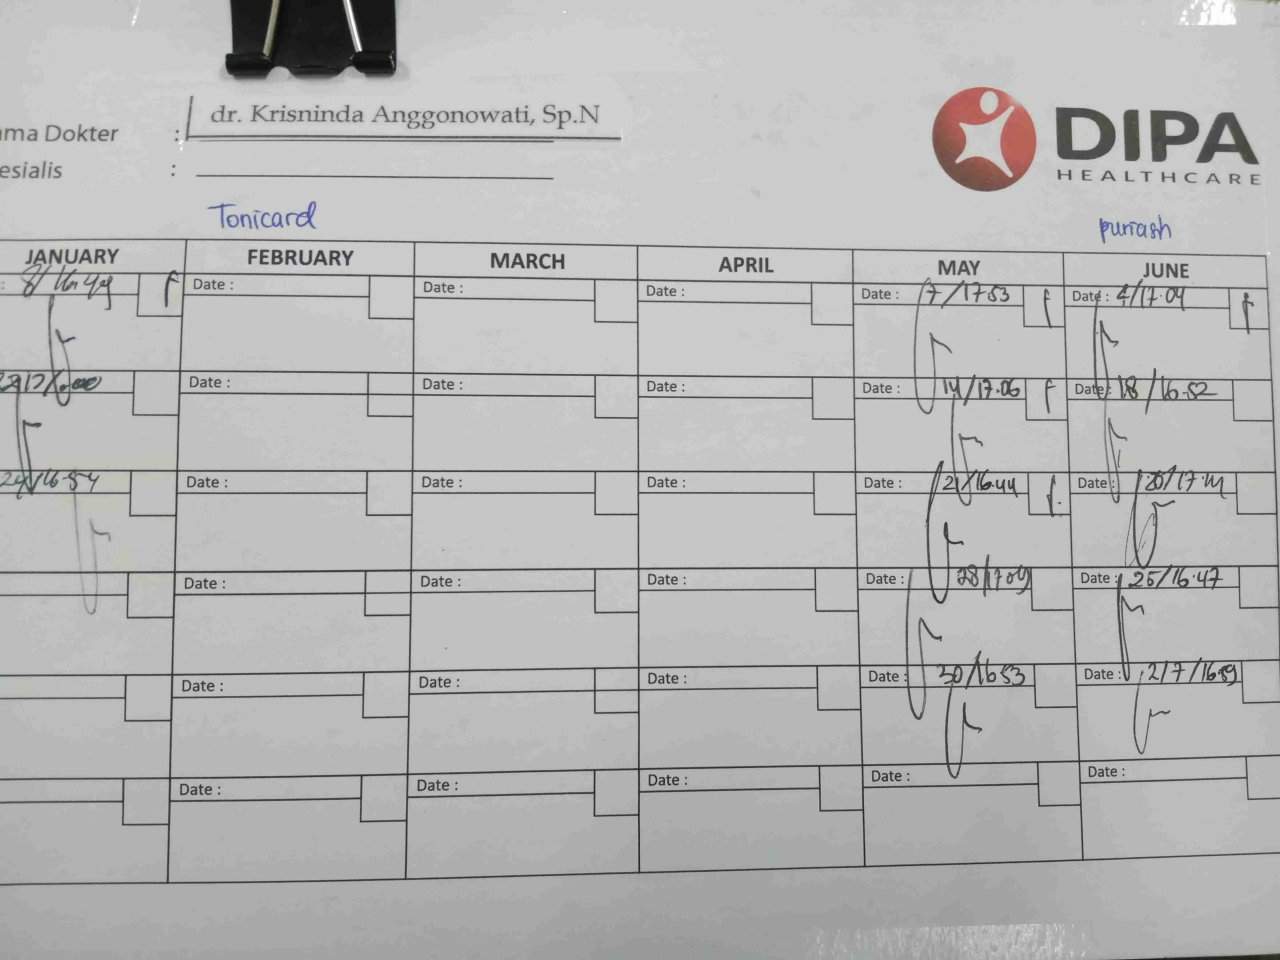 dr. Krisninda Anggonowati, Sp.N
ama Dokter :
esialis :
DIPA
HEALTHCARE
Tonicard
JANUARY FEBRUARY MARCH APRIL MAY JUNE
: 8/16.49 Date : Date : Date : Date : 7/17.53 Date : 4/17.04
Date : Date : Date : Date : 14/17.06 Date : 18/16.52
24/16.54 Date : Date : Date : Date : 21/16.44 Date :
Date : Date : Date : Date : 28/17.09 Date : 25/16.47
Date : Date : Date : Date : 30/16.53 Date : 2/7/16.59
Date : Date : Date : Date : Date :